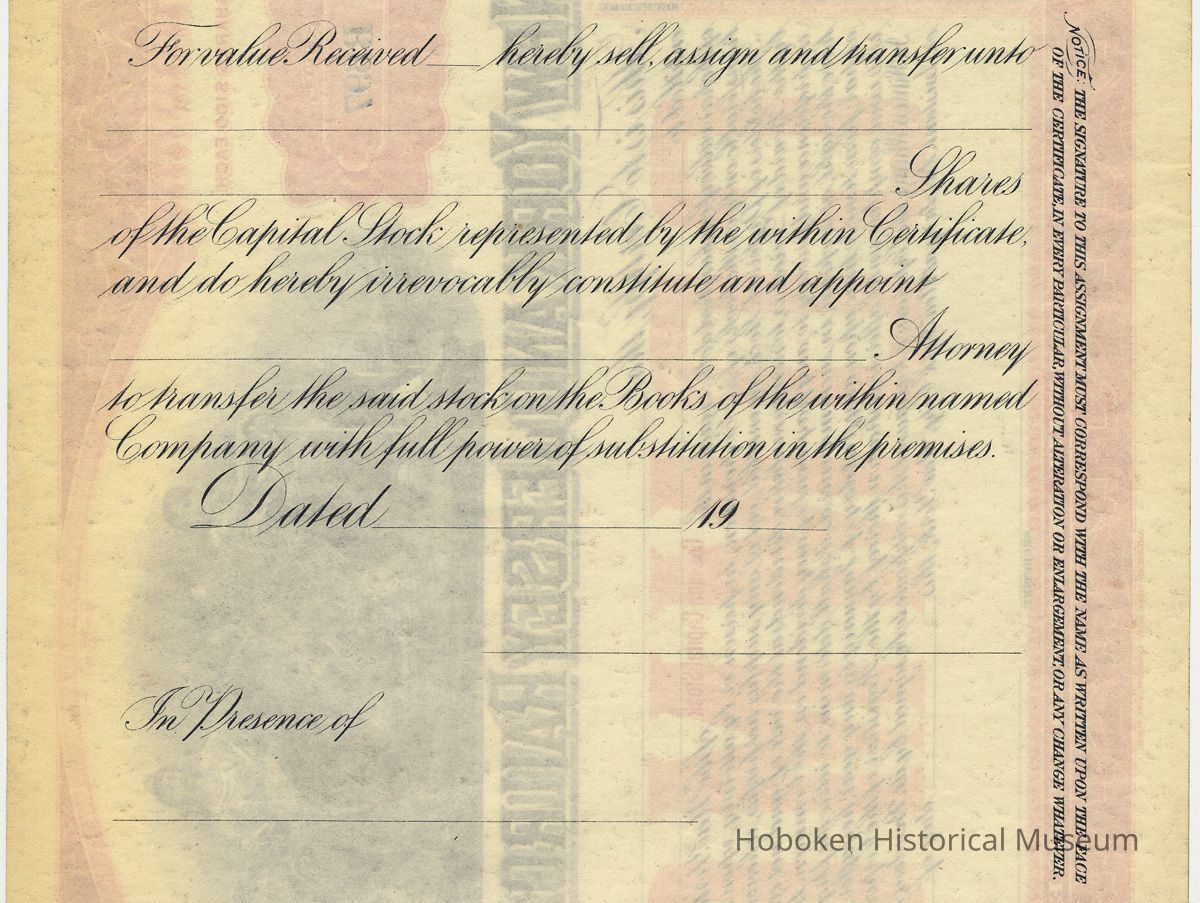 For value Received ___ hereby sell, assign and transfer unto
Shares
of the Capital Stock represented by the within Certificate,
and do hereby irrevocably constitute and appoint
Attorney
to transfer the said stock on the Books of the within named
Company with full power of substitution in the premises.
Dated 19
In Presence of
NOTICE: THE SIGNATURE TO THIS ASSIGNMENT MUST CORRESPOND WITH THE NAME AS WRITTEN UPON THE FACE
OF THE CERTIFICATE, IN EVERY PARTICULAR, WITHOUT ALTERATION OR ENLARGEMENT, OR ANY CHANGE WHATEVER.
Hoboken Historical Museum